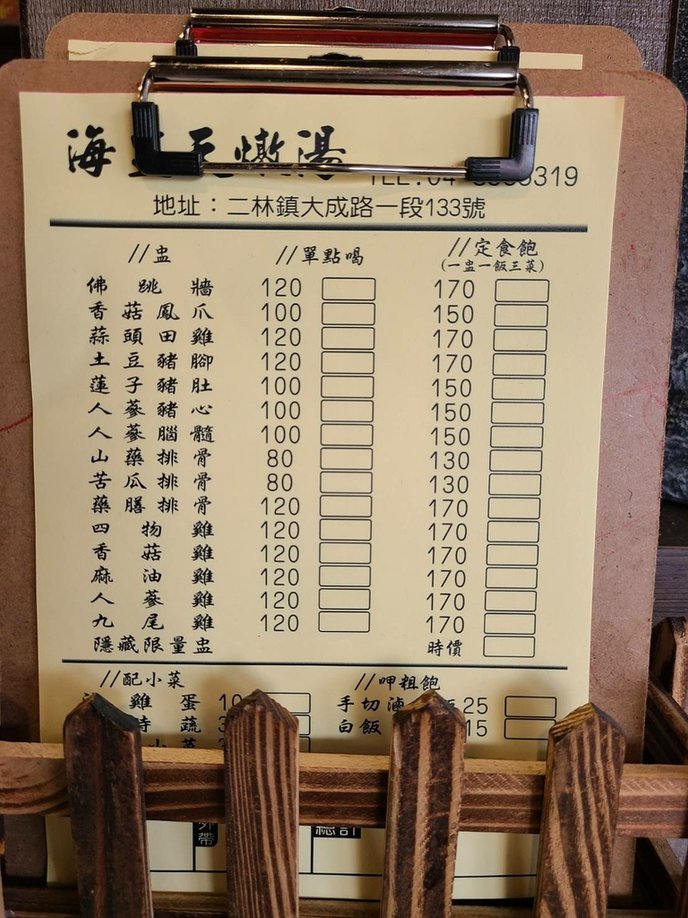 海 燉湯
TEL:04 319
地址：二林鎮大成路一段133號
//盅 //單點喝 //定食飽
(一盅一飯三菜)
佛跳牆 120 170
香菇鳳爪 100 150
蒜頭田雞 120 170
土豆豬腳 120 170
蓮子豬肚 100 150
人蔘豬心 100 150
人蔘腦髓 100 150
山藥排骨 80 130
苦瓜排骨 80 130
藥膳排骨 120 170
四物雞 120 170
香菇雞 120 170
麻油雞 120 170
人蔘雞 120 170
九尾雞 120 170
隱藏限量盅 時價
//配小菜 //呷粗飽
雞蛋 手切滷 25
時蔬 白飯 15
外帶 總計